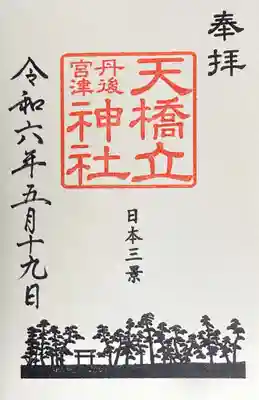 奉拝
天橋立
丹後
宮津
神社
日本三景
令和六年五月十九日